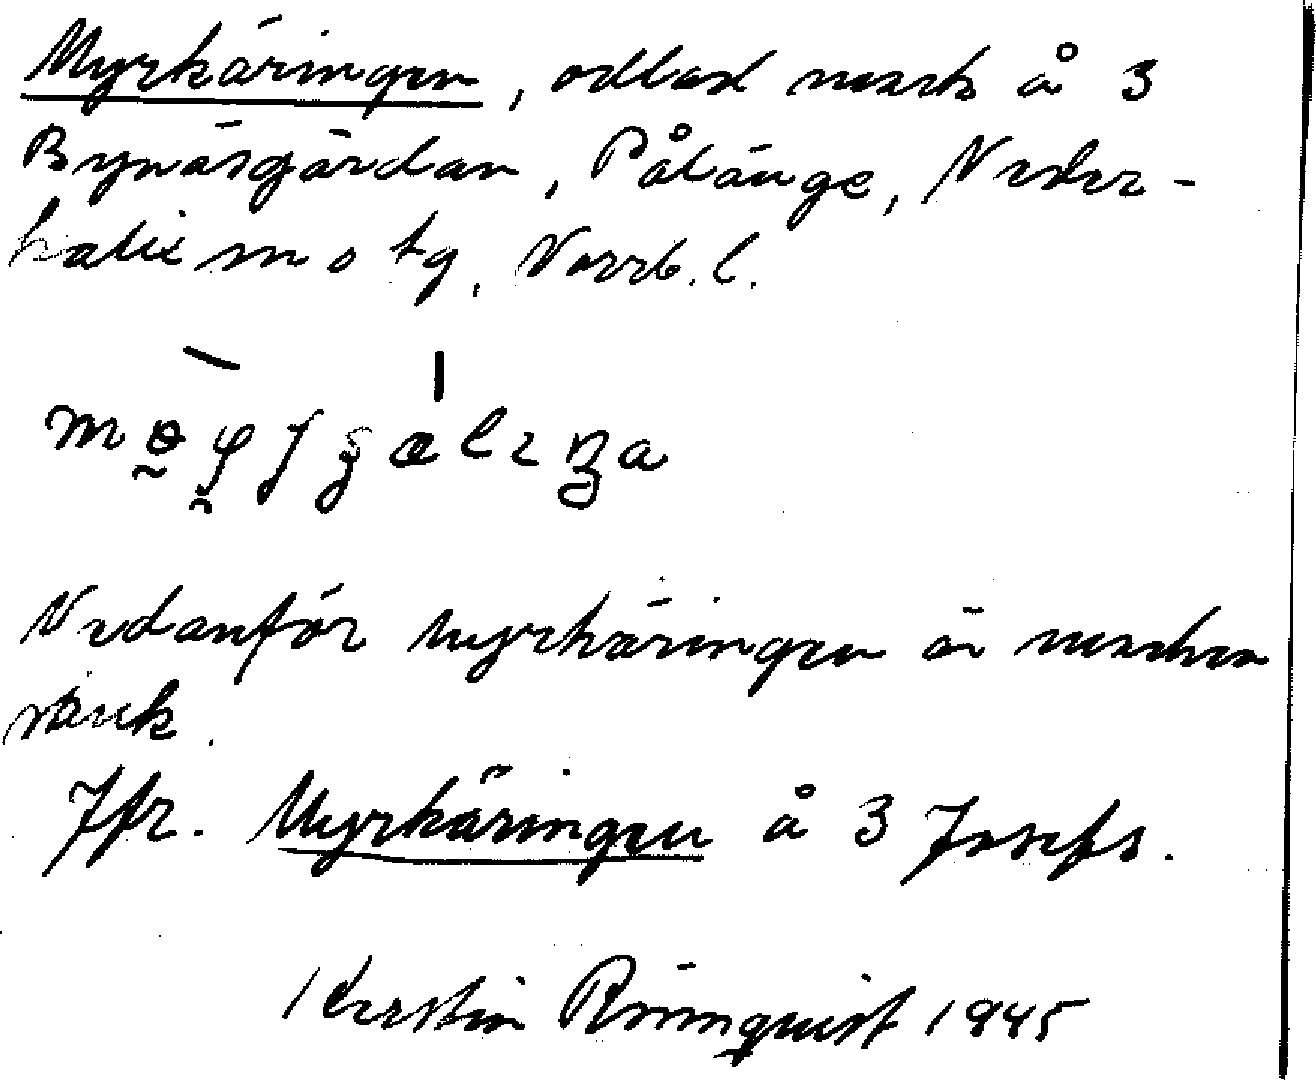 Myrkäringen, odlad mark å 3
Bynäsgärdan, Pålänge, Neder-
kalix sn o tg, Norrb. l.
Nedanför Myrkäringen är marken
sänk.
Jfr. Myrkäringen å 3 Josefs.
Kerstin Rönnquist 1945